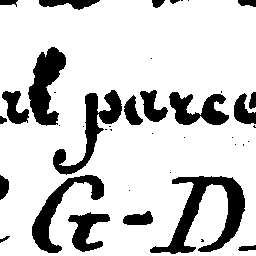 al parce
G-D